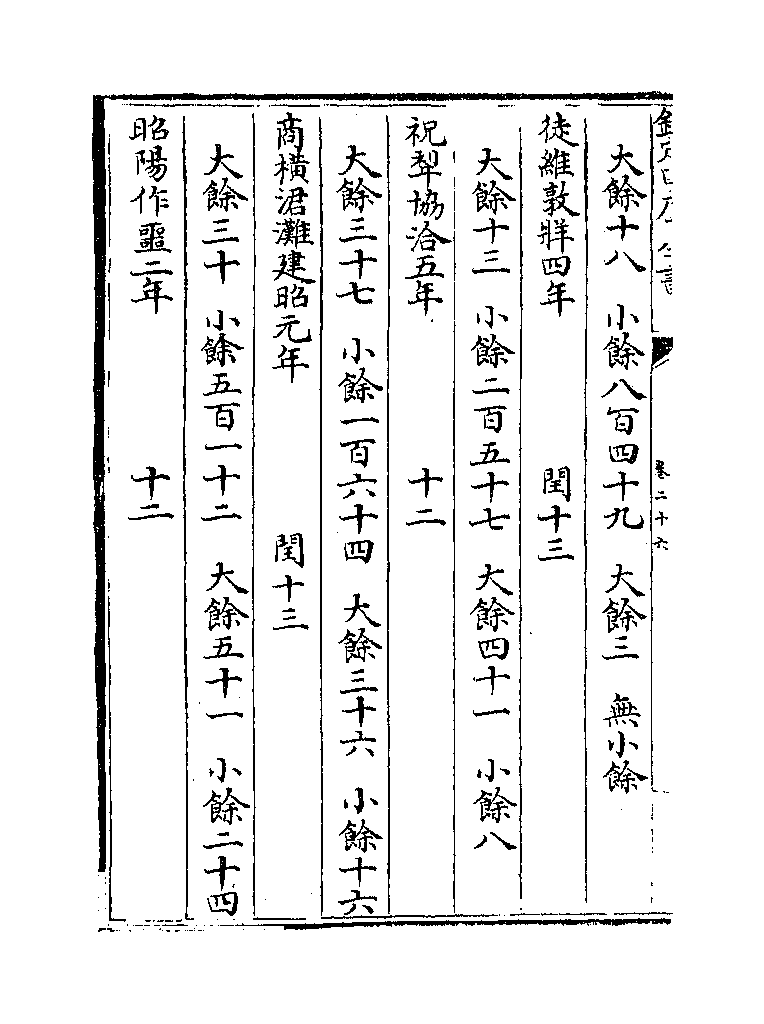 大餘十八　小餘八百四十九　大餘三　無小餘
徒維敦牂四年　閏十三
大餘十三　小餘二百五十七　大餘四十一　小餘八
祝犂協洽五年　十二
大餘三十七　小餘一百六十四　大餘三十六　小餘十六
商橫涒灘建昭元年　閏十三
大餘三十　小餘五百一十二　大餘五十一　小餘二十四
昭陽作噩二年　十二
卷二十六